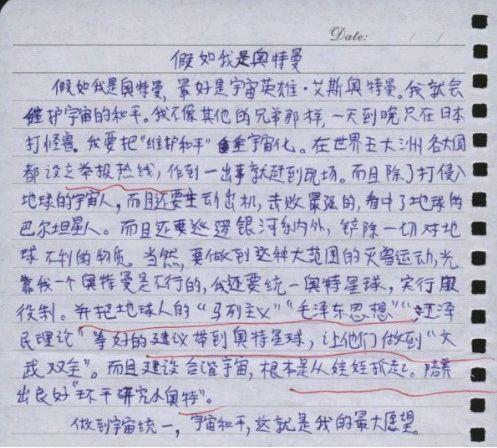 Date: / /
假如我是奥特曼
假如我是奥特曼,最好是宇宙英雄·艾斯奥特曼。我就会
维护宇宙的和平。我不像其他的兄弟那样,一天到晚只在日本
打怪兽。我要把“维护和平”宇宙化。在世界五大洲各大国
都设立举报热线,作到一出事就赶到现场。而且除了打侵入
地球的宇宙人,而且还要主动出机,击败最强的,看中了地球的
巴尔坦星人。而且还要巡逻银河系内外,铲除一切对地
球不利的物质。当然,要做到这种大范围的灭害运动,光
靠我一个奥特曼是不行的,我还要统一奥特星球,实行服
役制。并把地球人的“马列主义”“毛泽东思想”“泽
民理论”等好的建议带到奥特星球,让他们做到“文
武双全”。而且建设合谐宇宙,根本是从娃娃抓起。培养
出良好“环干研究小奥特”。
做到宇宙统一,宇宙和平,这就是我的最大愿望。